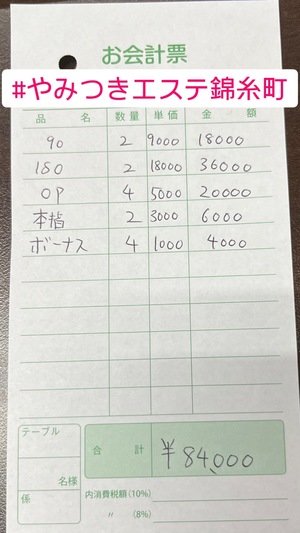 お会計票
#やみつきエステ錦糸町
品 名 数量 単価 金 額
90 2 9000 18000
180 2 18000 36000
OP 4 5000 20000
本指 2 3000 6000
ボーナス 4 1000 4000
テーブル
名様
係
合 計 ¥84,000
内消費税額(10%)
〃 (8%)